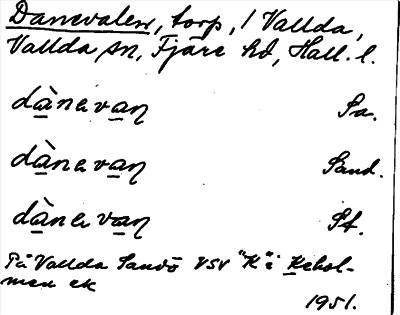 Danevalen, torp, / Vallda,
Vallda sn, Fjäre hd, Hall. l.
dànevaṉ Sa.
dànevaṉ Sand.
dànevaṉ St.
På Vallda Sandö VSV "K" i Kehol-
men ek
1951.